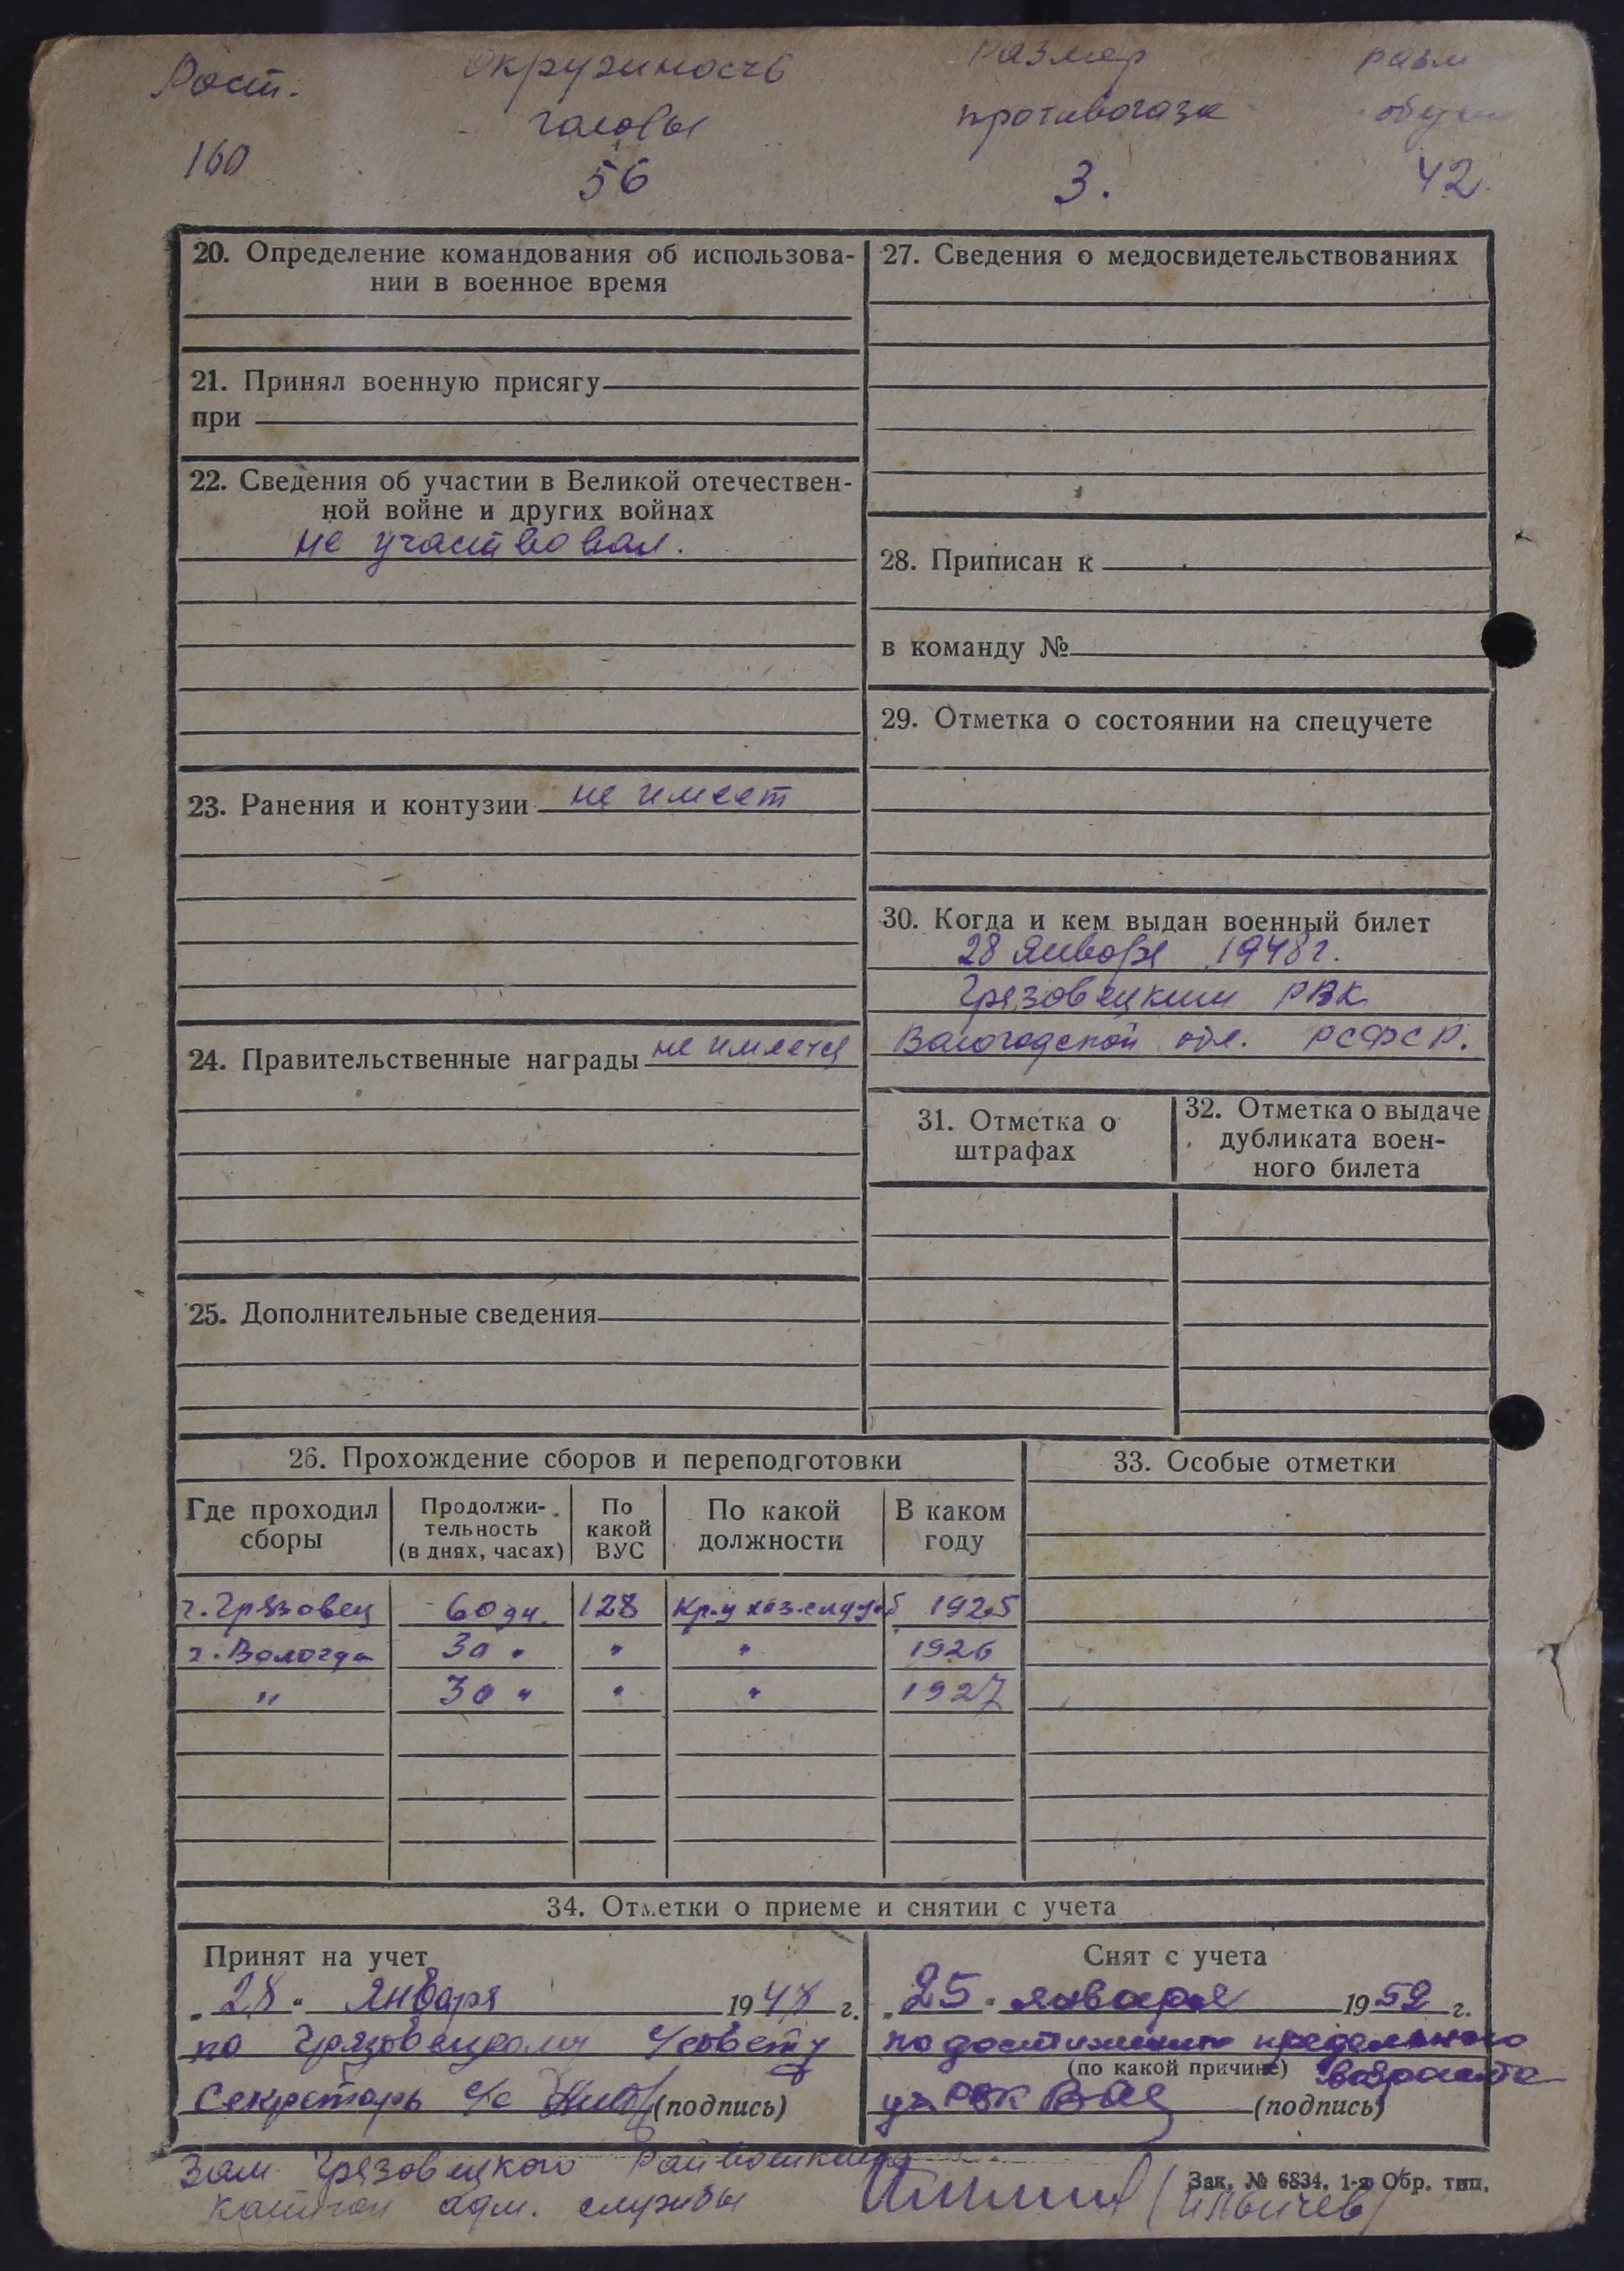 Рост. окружность размер разм
головы противогаза обуви
160 56 3. 42
20. Определение командования об использова-
нии в военное время
21. Принял военную присягу
при
22. Сведения об участии в Великой отечествен-
ной войне и других войнах
не участвовал.
23. Ранения и контузии не имеет
24. Правительственные награды не имеется
25. Дополнительные сведения
27. Сведения о медосвидетельствованиях
28. Приписан к
в команду №
29. Отметка о состоянии на спецучете
30. Когда и кем выдан военный билет
28 января 1948 г.
Грязовецким РВК
Вологодской обл. РСФСР.
31. Отметка о
штрафах
32. Отметка о выдаче
дубликата воен-
ного билета
26. Прохождение сборов и переподготовки
Где проходил
сборы
Продолжи-
тельность
(в днях, часах)
По
какой
ВУС
По какой
должности
В каком
году
г. Грязовец 60 дн. 128 1925
г. Вологда 30 " " " 1926
" 30 " " " 1927
33. Особые отметки
34. Отметки о приеме и снятии с учета
Принят на учет
„28“ января 1948 г.
по Грязовецкому с/совету
Секретарь с/с (подпись)
Снят с учета
„25“ января 1952 г.
по достижении предельного
(по какой причине) возраста
РВК (подпись)
Зам. Грязовецкого Райвоенкома
капитан адм. службы (Ильичев)
Зак. № 6834. 1-я Обр. тип.